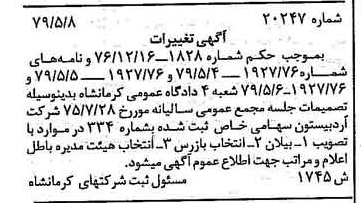 شماره ۲۰۲۴۷ ۷۹/۵/۸
آگهی تغییرات
بموجب حکم شماره ۱۸۲۸ــ۷۶/۱۲/۱۶ و نامه‌های
شماره ۱۹۲۷/۷۶ ــ ۷۹/۵/۴ و ۱۹۲۷/۷۶ ــ ۷۹/۵/۵ و
۱۹۲۷/۷۶ــ۷۹/۵/۶ شعبه ۴ دادگاه عمومی کرمانشاه بدینوسیله
تصمیمات جلسه مجمع عمومی سالیانه مورخ ۷۵/۷/۲۸ شرکت
آردبیستون سهامی خاص ثبت شده بشماره ۳۳۴ در موارد با
تصویب ۱ــ بیلان ۲ــ انتخاب بازرس ۳ــ انتخاب هیئت مدیره باطل
اعلام و مراتب جهت اطلاع عموم آگهی میشود.
ش ۱۷۴۵ مسئول ثبت شرکتهای کرمانشاه